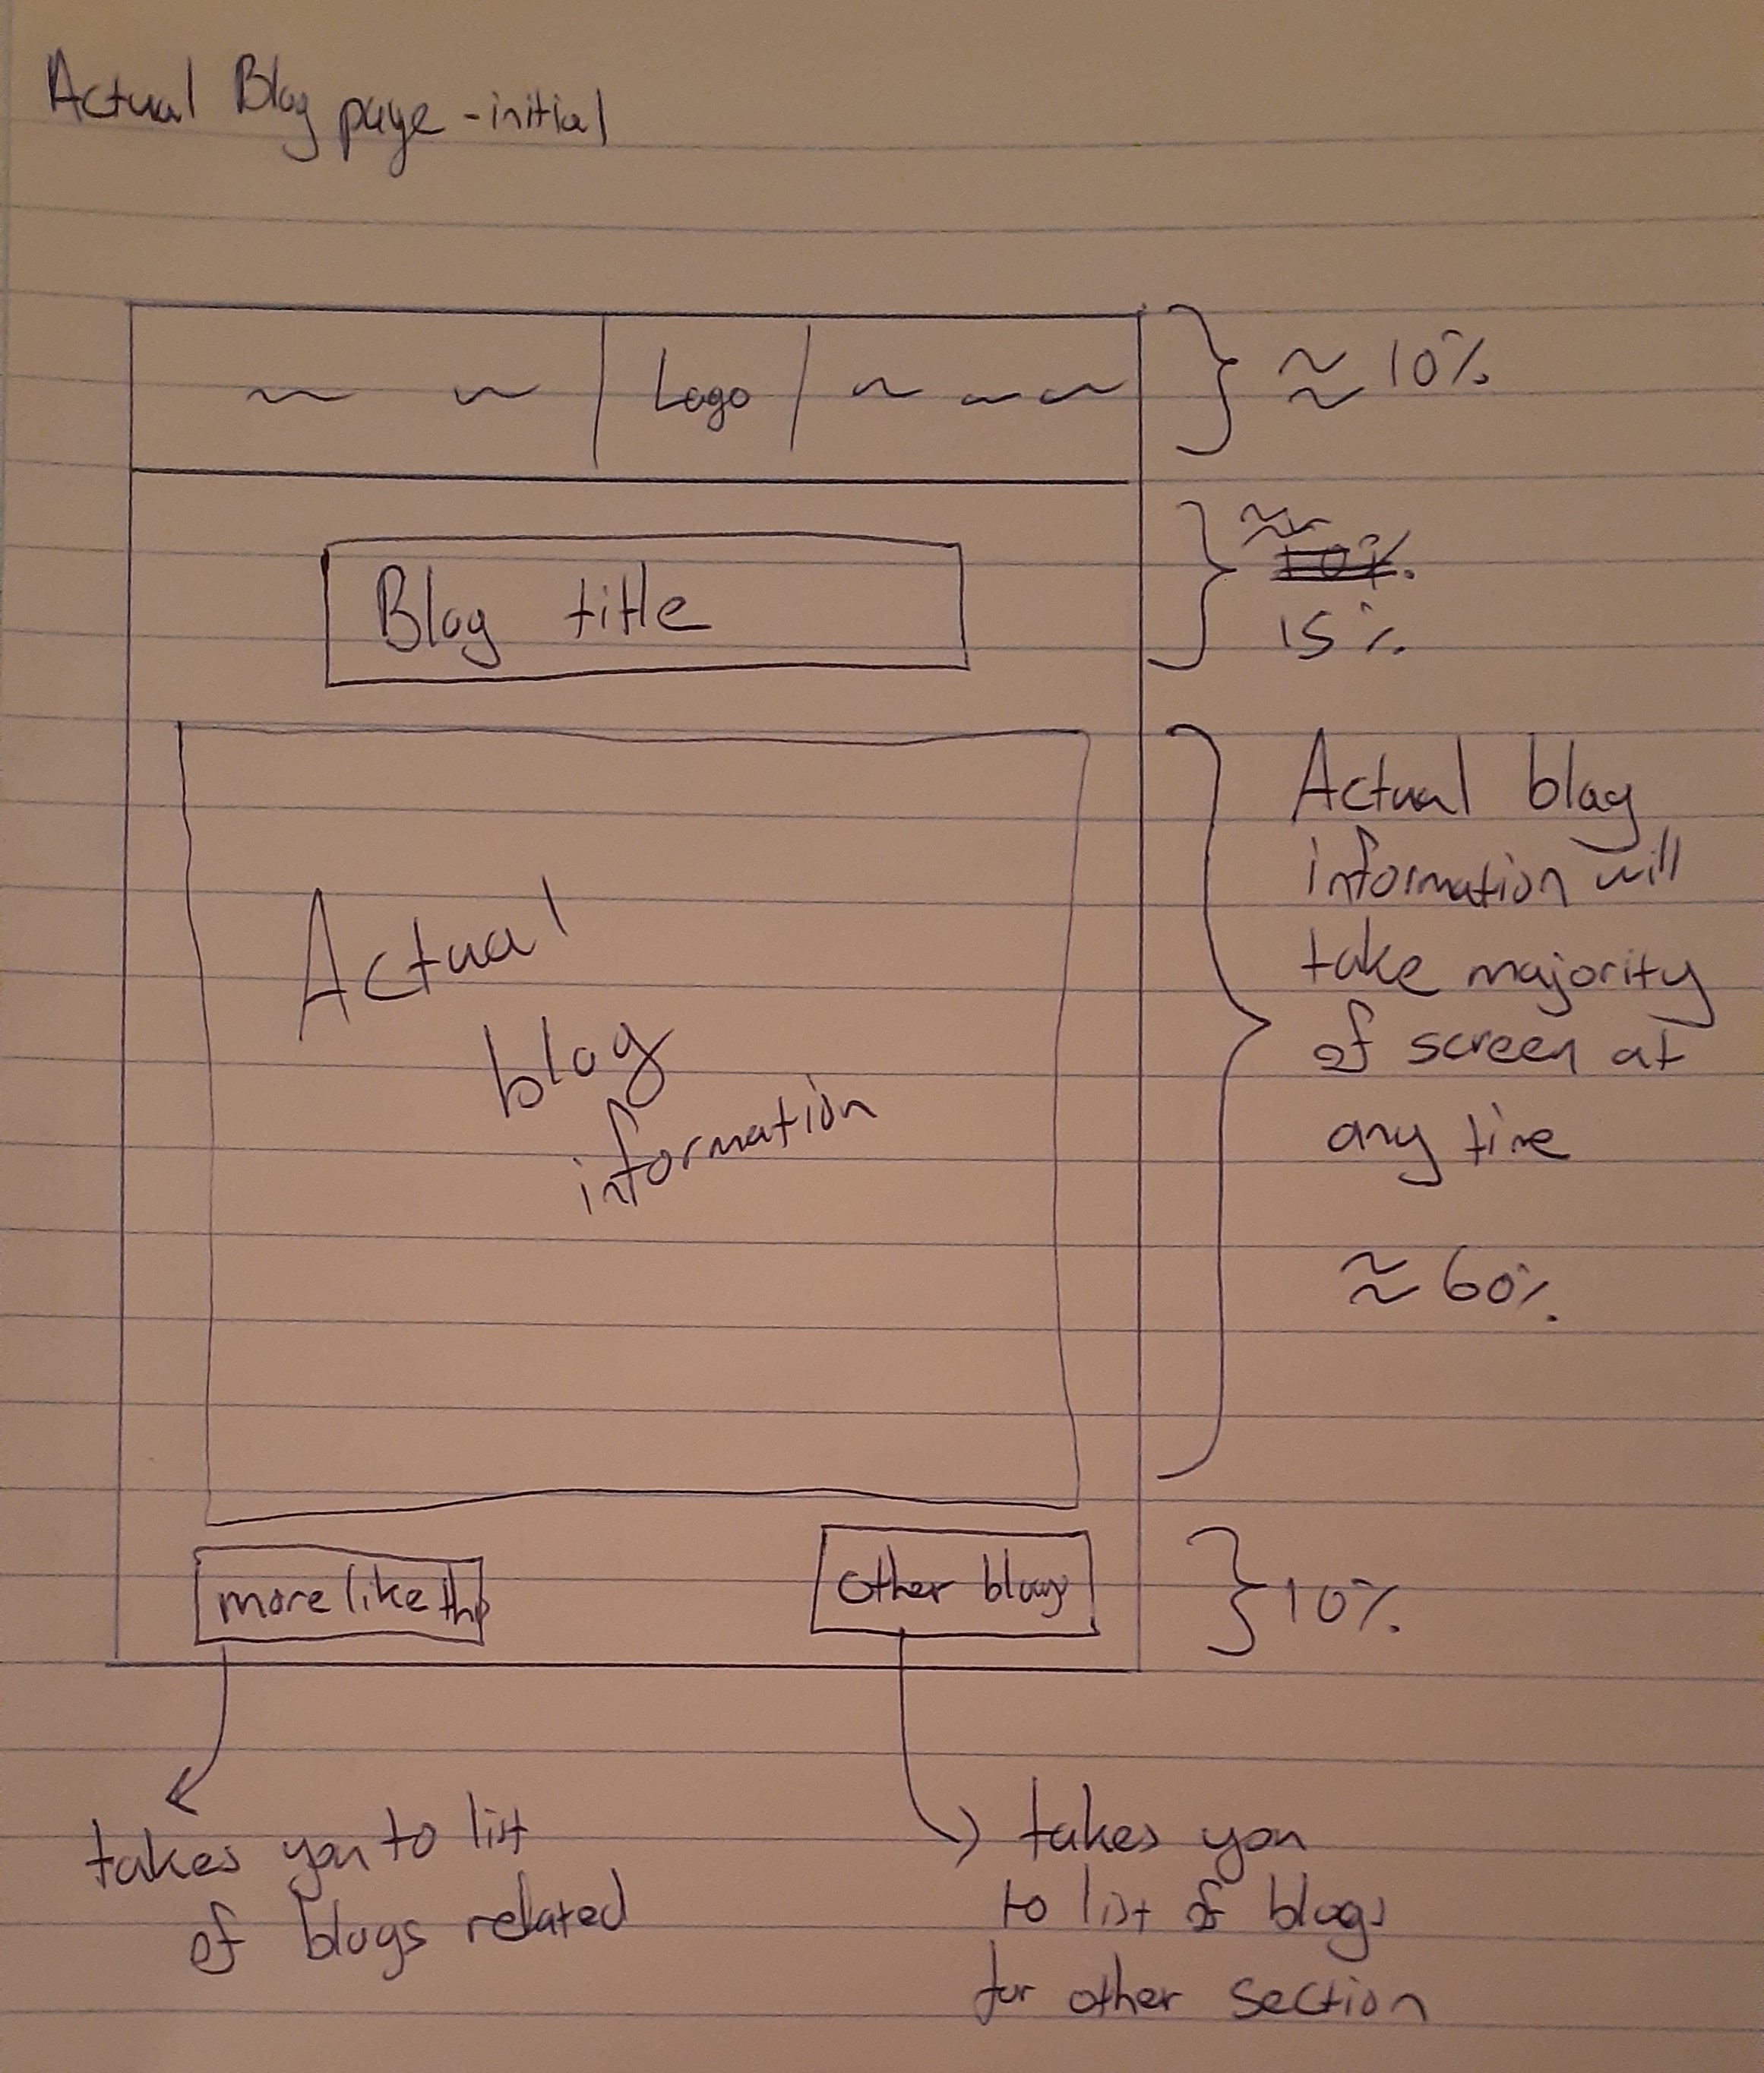 Actual Blog page - initial
Logo
≈ 10%
Blog title
≈ 10%.
15%
Actual
blog
information
Actual blog
information will
take majority
of screen at
any time
≈ 60%
more like this
other blogs
10%
takes you to list
of blogs related
takes you
to list of blogs
for other section